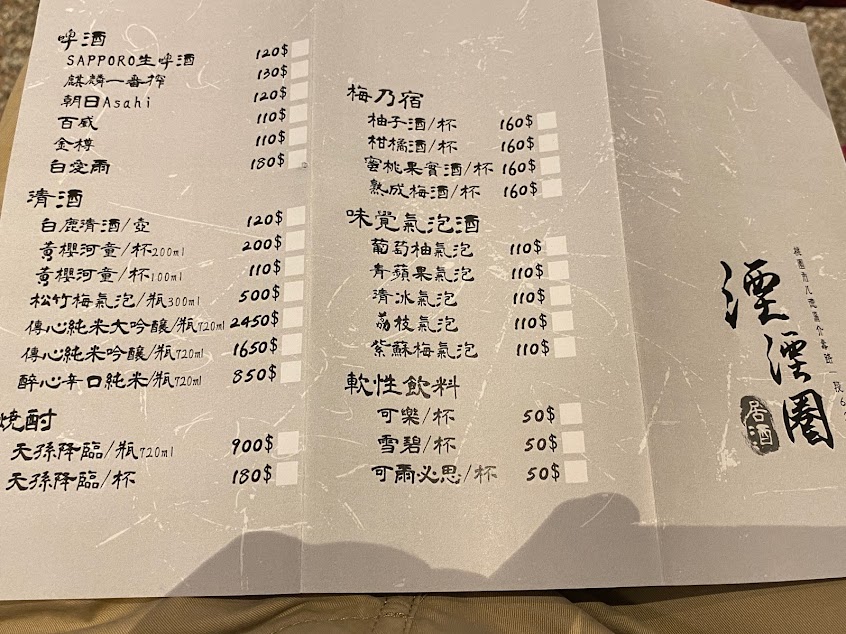 啤酒
SAPPORO生啤酒 120$
麒麟一番搾 130$
朝日Asahi 120$
百威 110$
金樽 110$
白愛雨 180$
清酒
白鹿清酒/壺 120$
黃櫻河童/杯200ml 200$
黃櫻河童/杯100ml 110$
松竹梅氣泡/瓶300ml 500$
傳心純米大吟釀/瓶720ml 2450$
傳心純米吟釀/瓶720ml 1650$
醉心辛口純米/瓶720ml 850$
燒酎
天孫降臨/瓶720ml 900$
天孫降臨/杯 180$
梅乃宿
柚子酒/杯 160$
柑橘酒/杯 160$
蜜桃果實酒/杯 160$
熟成梅酒/杯 160$
味覚氣泡酒
葡萄柚氣泡 110$
青蘋果氣泡 110$
清冰氣泡 110$
荔枝氣泡 110$
紫蘇梅氣泡 110$
軟性飲料
可樂/杯 50$
雪碧/杯 50$
可爾必思/杯 50$
桃園市八德區介壽路一段
湮湮圈
居酒